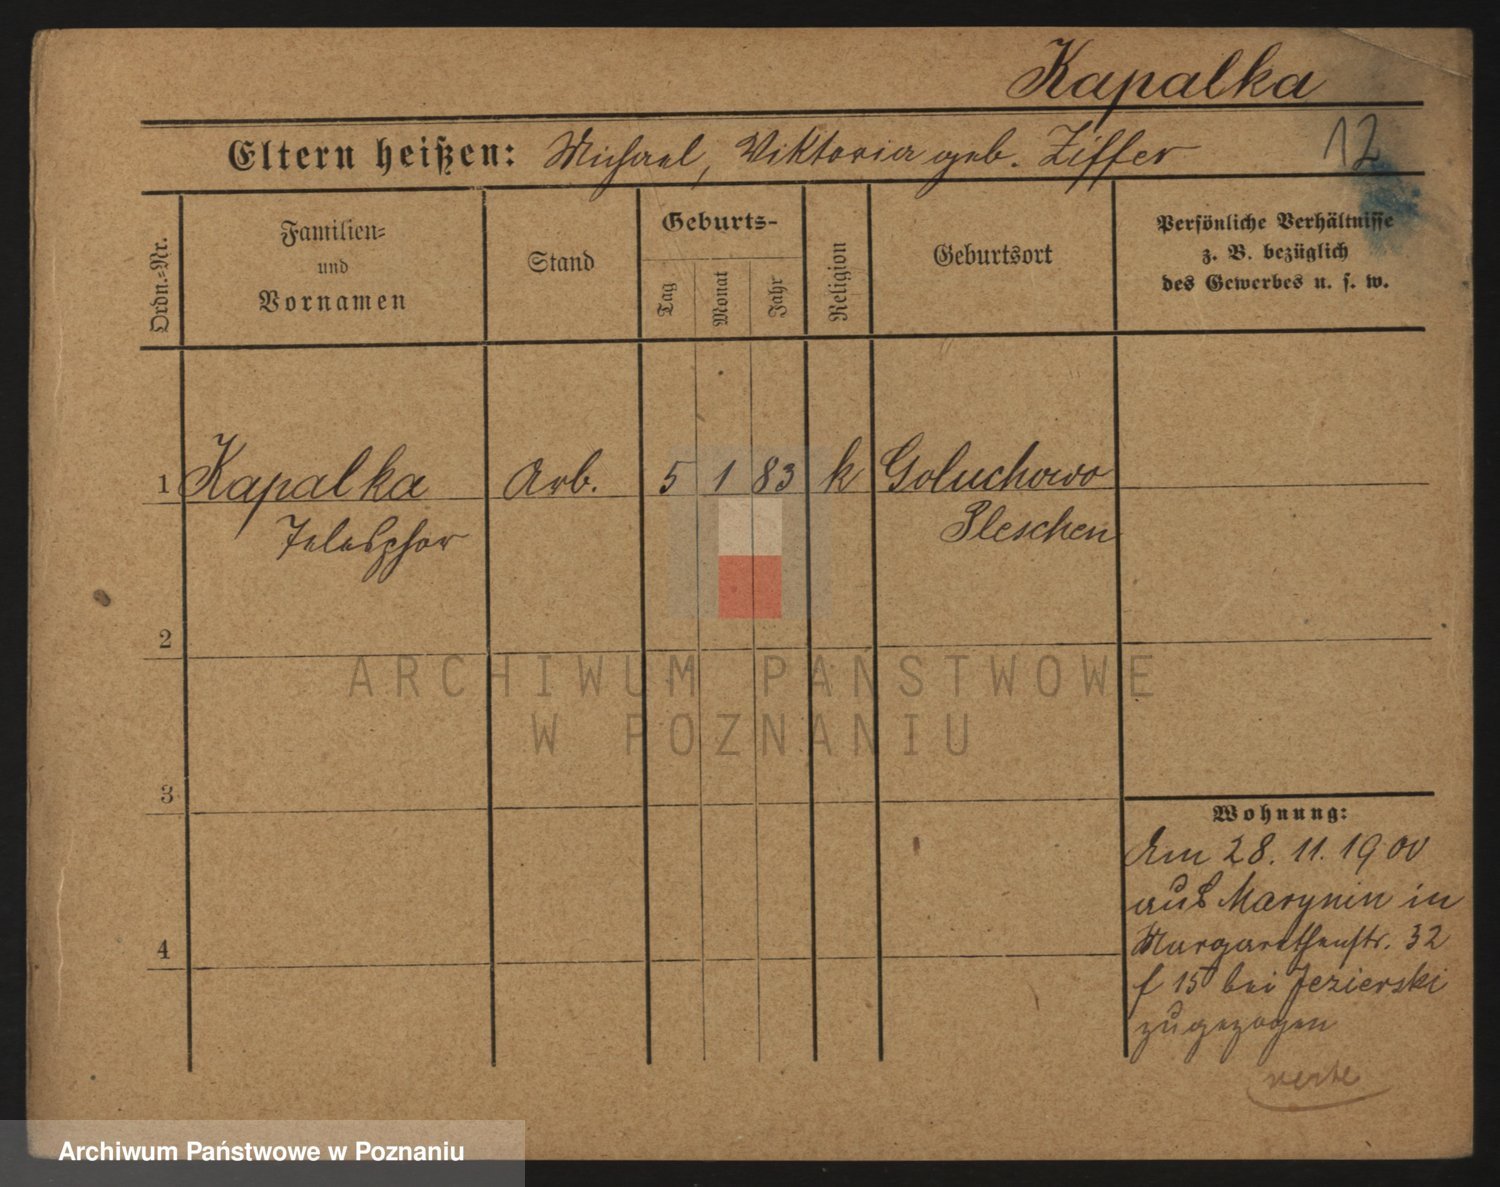 Kapalka
12
Eltern heißen: Michael, Viktoria geb. Ziffer
Ordn.-Nr.
Familien-
und
Vornamen
Stand
Geburts-
Tag
Monat
Jahr
Religion
Geburtsort
Persönliche Verhältnisse
z. B. bezüglich
des Gewerbes u. s. w.
1 Kapalka Arb. 5 1 83 k Goluchowo
Telesphor Pleschen
2
3
4
Wohnung:
Am 28. 11. 1900
aus Marynin in
Margarethenstr. 32
f 15 bei Jezierski
zugezogen
verte
ARCHIWUM PAŃSTWOWE
W POZNANIU
Archiwum Państwowe w Poznaniu